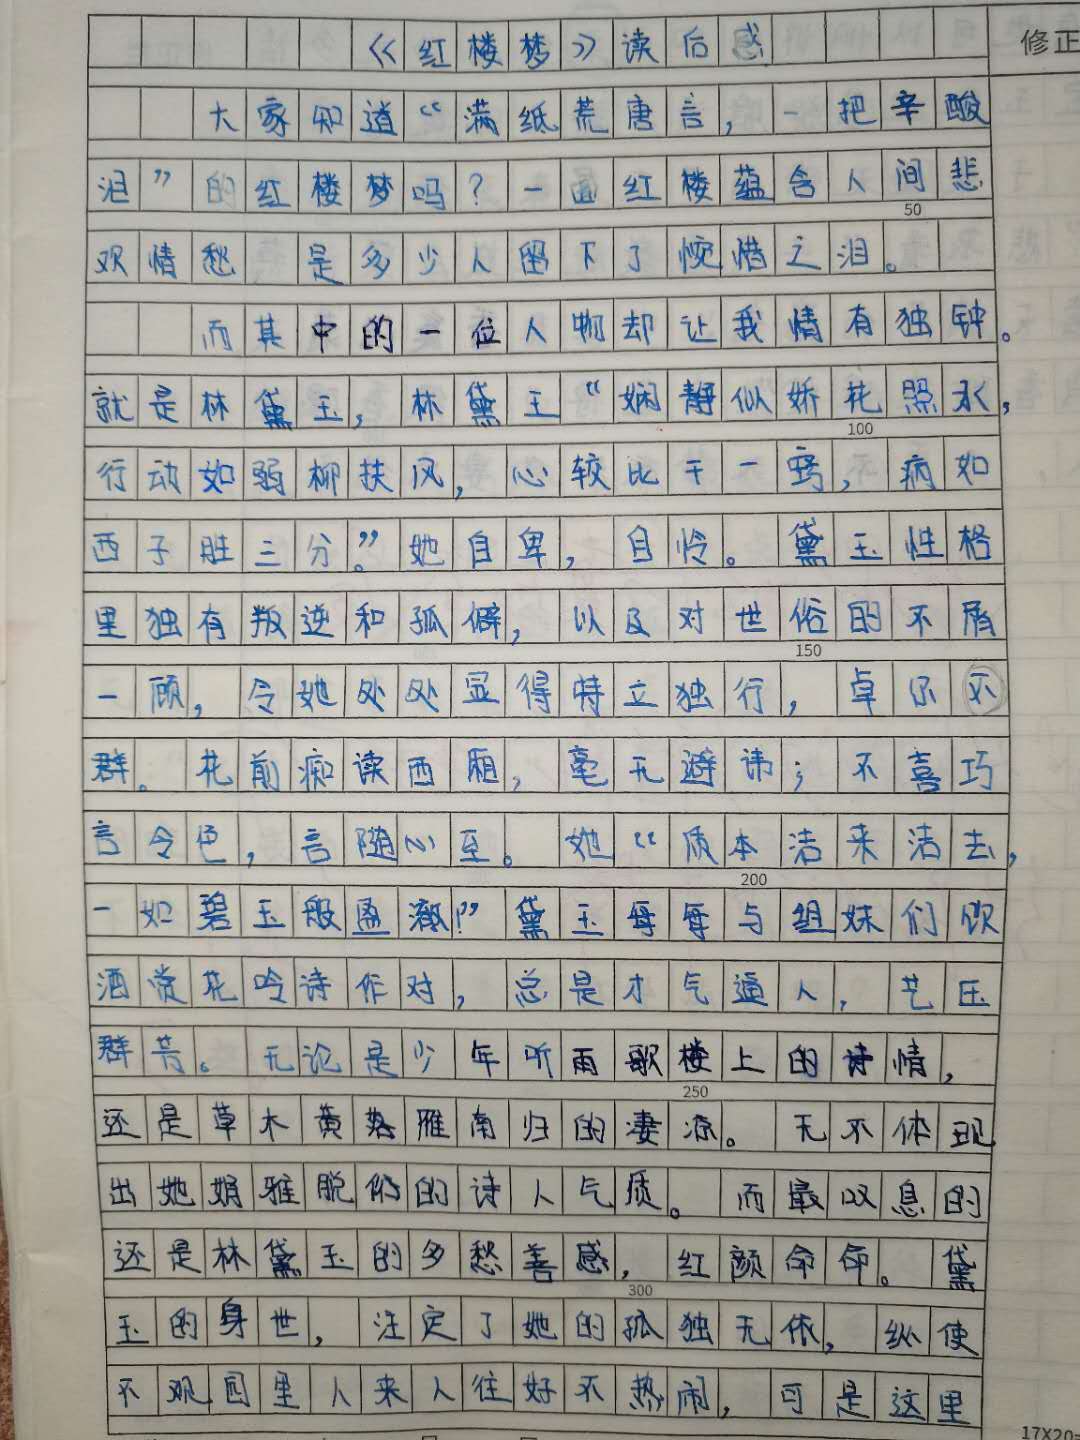 《红楼梦》读后感
修正
大家知道“满纸荒唐言,一把辛酸
泪”的红楼梦吗?一曲红楼蕴含人间悲
欢情愁 是多少人留下了惋惜之泪。
50
而其中的一位人物却让我情有独钟。
就是林黛玉,林黛玉“娴静似娇花照水,
100
行动如弱柳扶风,心较比干一窍,病如
西子胜三分。”她自卑,自怜。黛玉性格
里独有叛逆和孤僻,以及对世俗的不屑
150
一顾,令她处处显得特立独行,卓尔不
群。花前痴读西厢,毫无避讳;不喜巧
言令色,言随心至。她“质本洁来洁去,
200
一如碧玉般盈澈!”黛玉每每与姐妹们饮
酒赏花吟诗作对,总是才气逼人,艺压
群芳。无论是少年听雨歌楼上的诗情,
250
还是草木黄落雁南归的凄凉。无不体现
出她娟雅脱俗的诗人气质。而最叹息的
还是林黛玉的多愁善感,红颜命命。黛
300
玉的身世,注定了她的孤独无依,纵使
不观园里人来人往好不热闹,可是这里
17X20=